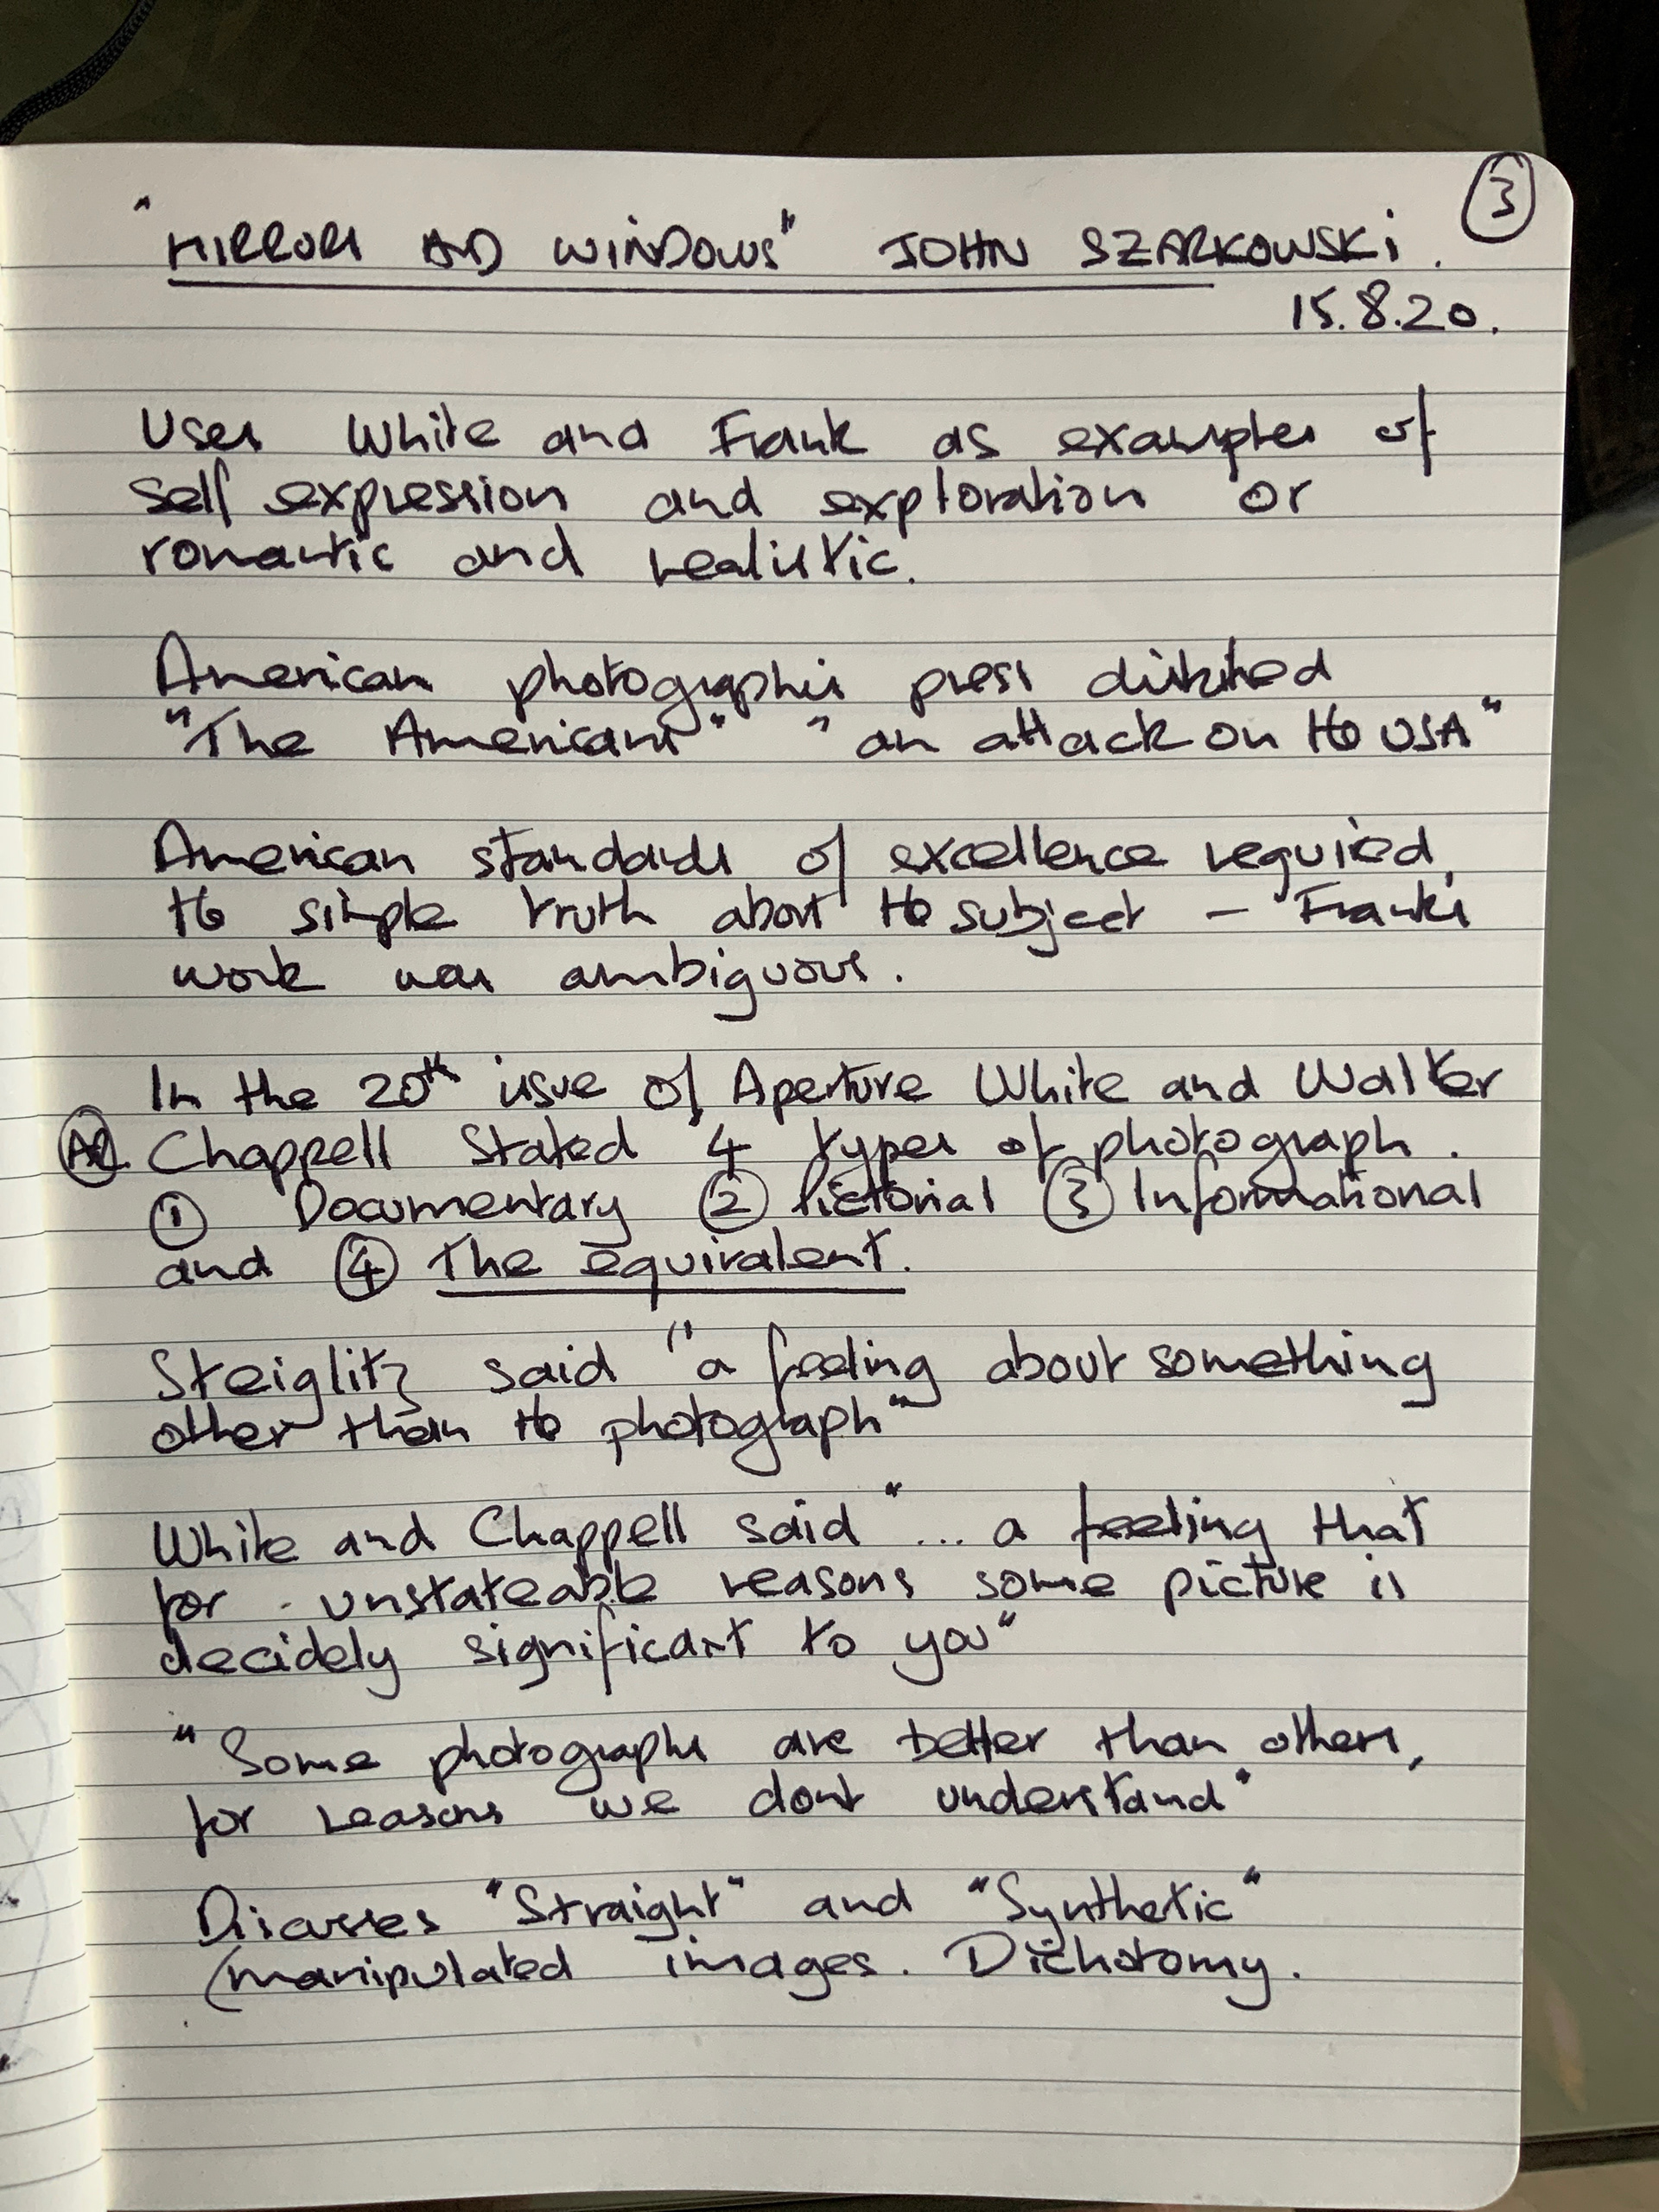 ③
"MIRRORS AND WINDOWS" JOHN SZARKOWSKI.
15.8.20.
Uses White and Frank as examples of
self expression and exploration or
romantic and realistic.
American photographic press disliked
"The Americans" "an attack on the USA"
American standards of excellence required,
the simple truth about the subject – Franks
work was ambiguous.
In the 20th issue of Aperture White and Walter
Chappell stated 4 types of photograph.
① Documentary ② Pictorial ③ Informational
and ④ The equivalent.
Steiglitz said "a feeling about something
other than the photograph"
White and Chappell said "... a feeling that
for unstateable reasons some picture is
decidely significant to you"
"Some photographs are better than others,
for reasons we dont understand"
Discusses "Straight" and "Synthetic"
(manipulated images. Dichotomy.